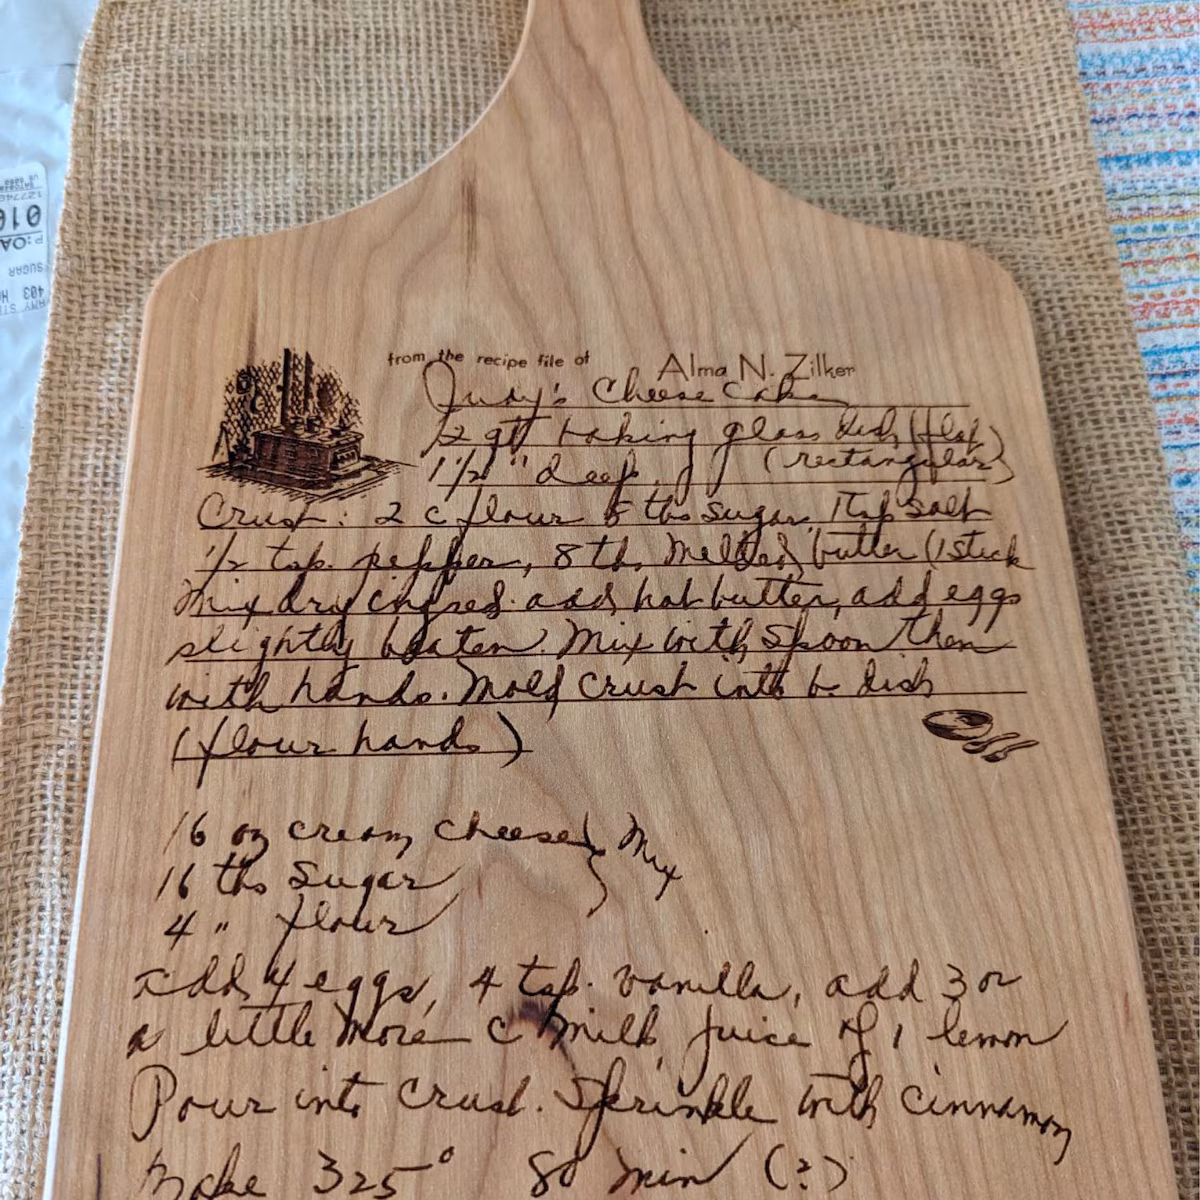 from the recipe file of Alma N. Zilker
Judy's Cheese Cake
2 qt baking glass dish (flat)
1 1/2" deep (rectangular)
Crust: 2 c flour 8 tbs sugar, 1 tsp salt
1/2 tsp. pepper, 8 tbs melted butter (1 stick
Mix dry ingred. add hot butter, add eggs
slightly beaten. Mix with spoon then
with hands. Mold crust into b. dish
(flour hands)
16 oz cream cheese } Mix
16 tbs sugar
4 " flour
add 4 eggs, 4 tsp. vanilla, add 3 or
a little more c milk, juice of 1 lemon
Pour into crust. Sprinkle with cinnamon
Bake 325° 80 min (?)
016
P:OA
SUGAR
403